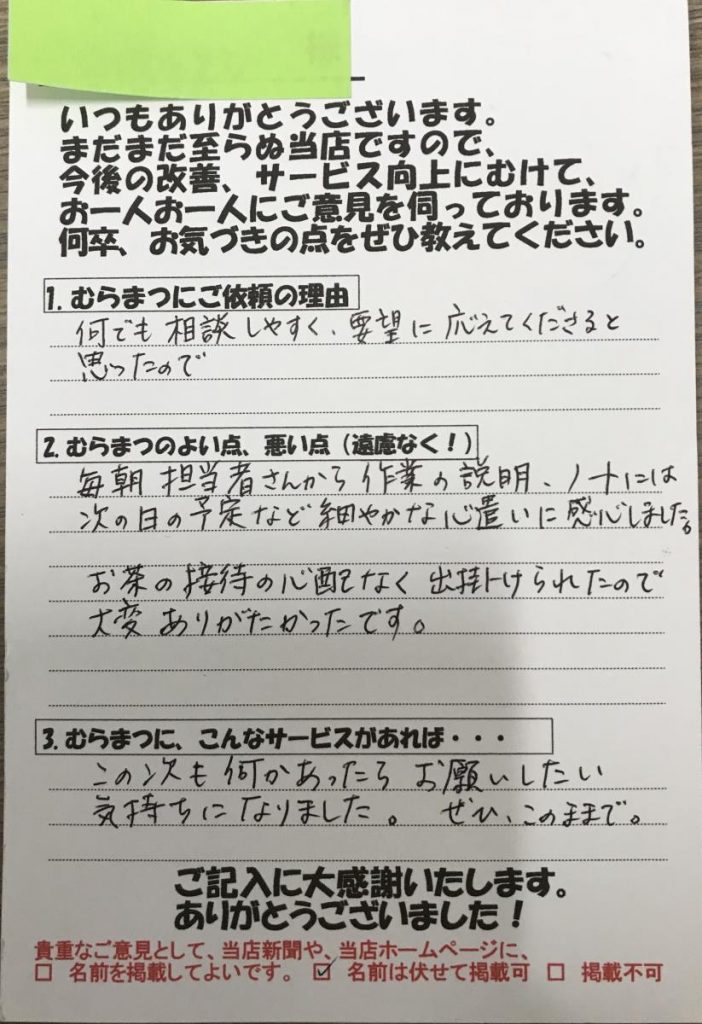 いつもありがとうございます。
まだまだ至らぬ当店ですので、
今後の改善、サービス向上にむけて、
お一人お一人にご意見を伺っております。
何卒、お気づきの点をぜひ教えてください。
1. むらまつにご依頼の理由
何でも相談しやすく、要望に応えてくださると
思ったので
2. むらまつのよい点、悪い点（遠慮なく！）
毎朝担当者さんから作業の説明、ノートには
次の日の予定など細やかな心遣いに感心しました。
お茶の接待の心配なく出掛けられたので
大変ありがたかったです。
3. むらまつに、こんなサービスがあれば・・・
この次も何かあったらお願いしたい
気持ちになりました。ぜひ、このままで。
ご記入に大感謝いたします。
ありがとうございました！
貴重なご意見として、当店新聞や、当店ホームページに、
□ 名前を掲載してよいです。 ☑ 名前は伏せて掲載可 □ 掲載不可